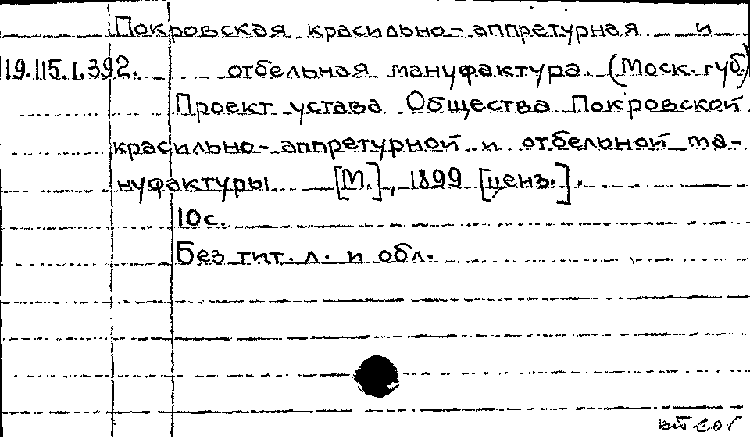 Покровская красильно-аппретурная и
19.115.1.392. отбельная мануфактура. (Моск. губ.)
Проект устава Общества Покровской
красильно-аппретурной и отбельной ма-
нуфактуры [М.], 1899 [ценз.].
10с.
Без тит. л. и обл.